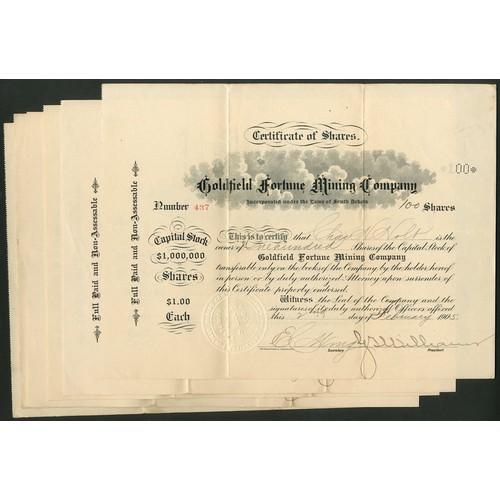 Certificate of Shares.
100
Goldfield Fortune Mining Company
Incorporated under the Laws of South Dakota
Number 437
100 Shares
Capital Stock
$1,000,000
Shares
$1.00
Each
This is to certify that Chas Holt is the
owner of One hundred Shares of the Capital Stock of
Goldfield Fortune Mining Company
transferable only on the books of the Company by the holder hereof
in person or by duly authorized Attorney upon surrender of
this Certificate properly endorsed.
Witness the Seal of the Company and the
signatures of its duly authorized Officers affixed
this day of February 1905
Secretary
President
Full Paid and Non-Assessable
Full Paid and Non-Assessable